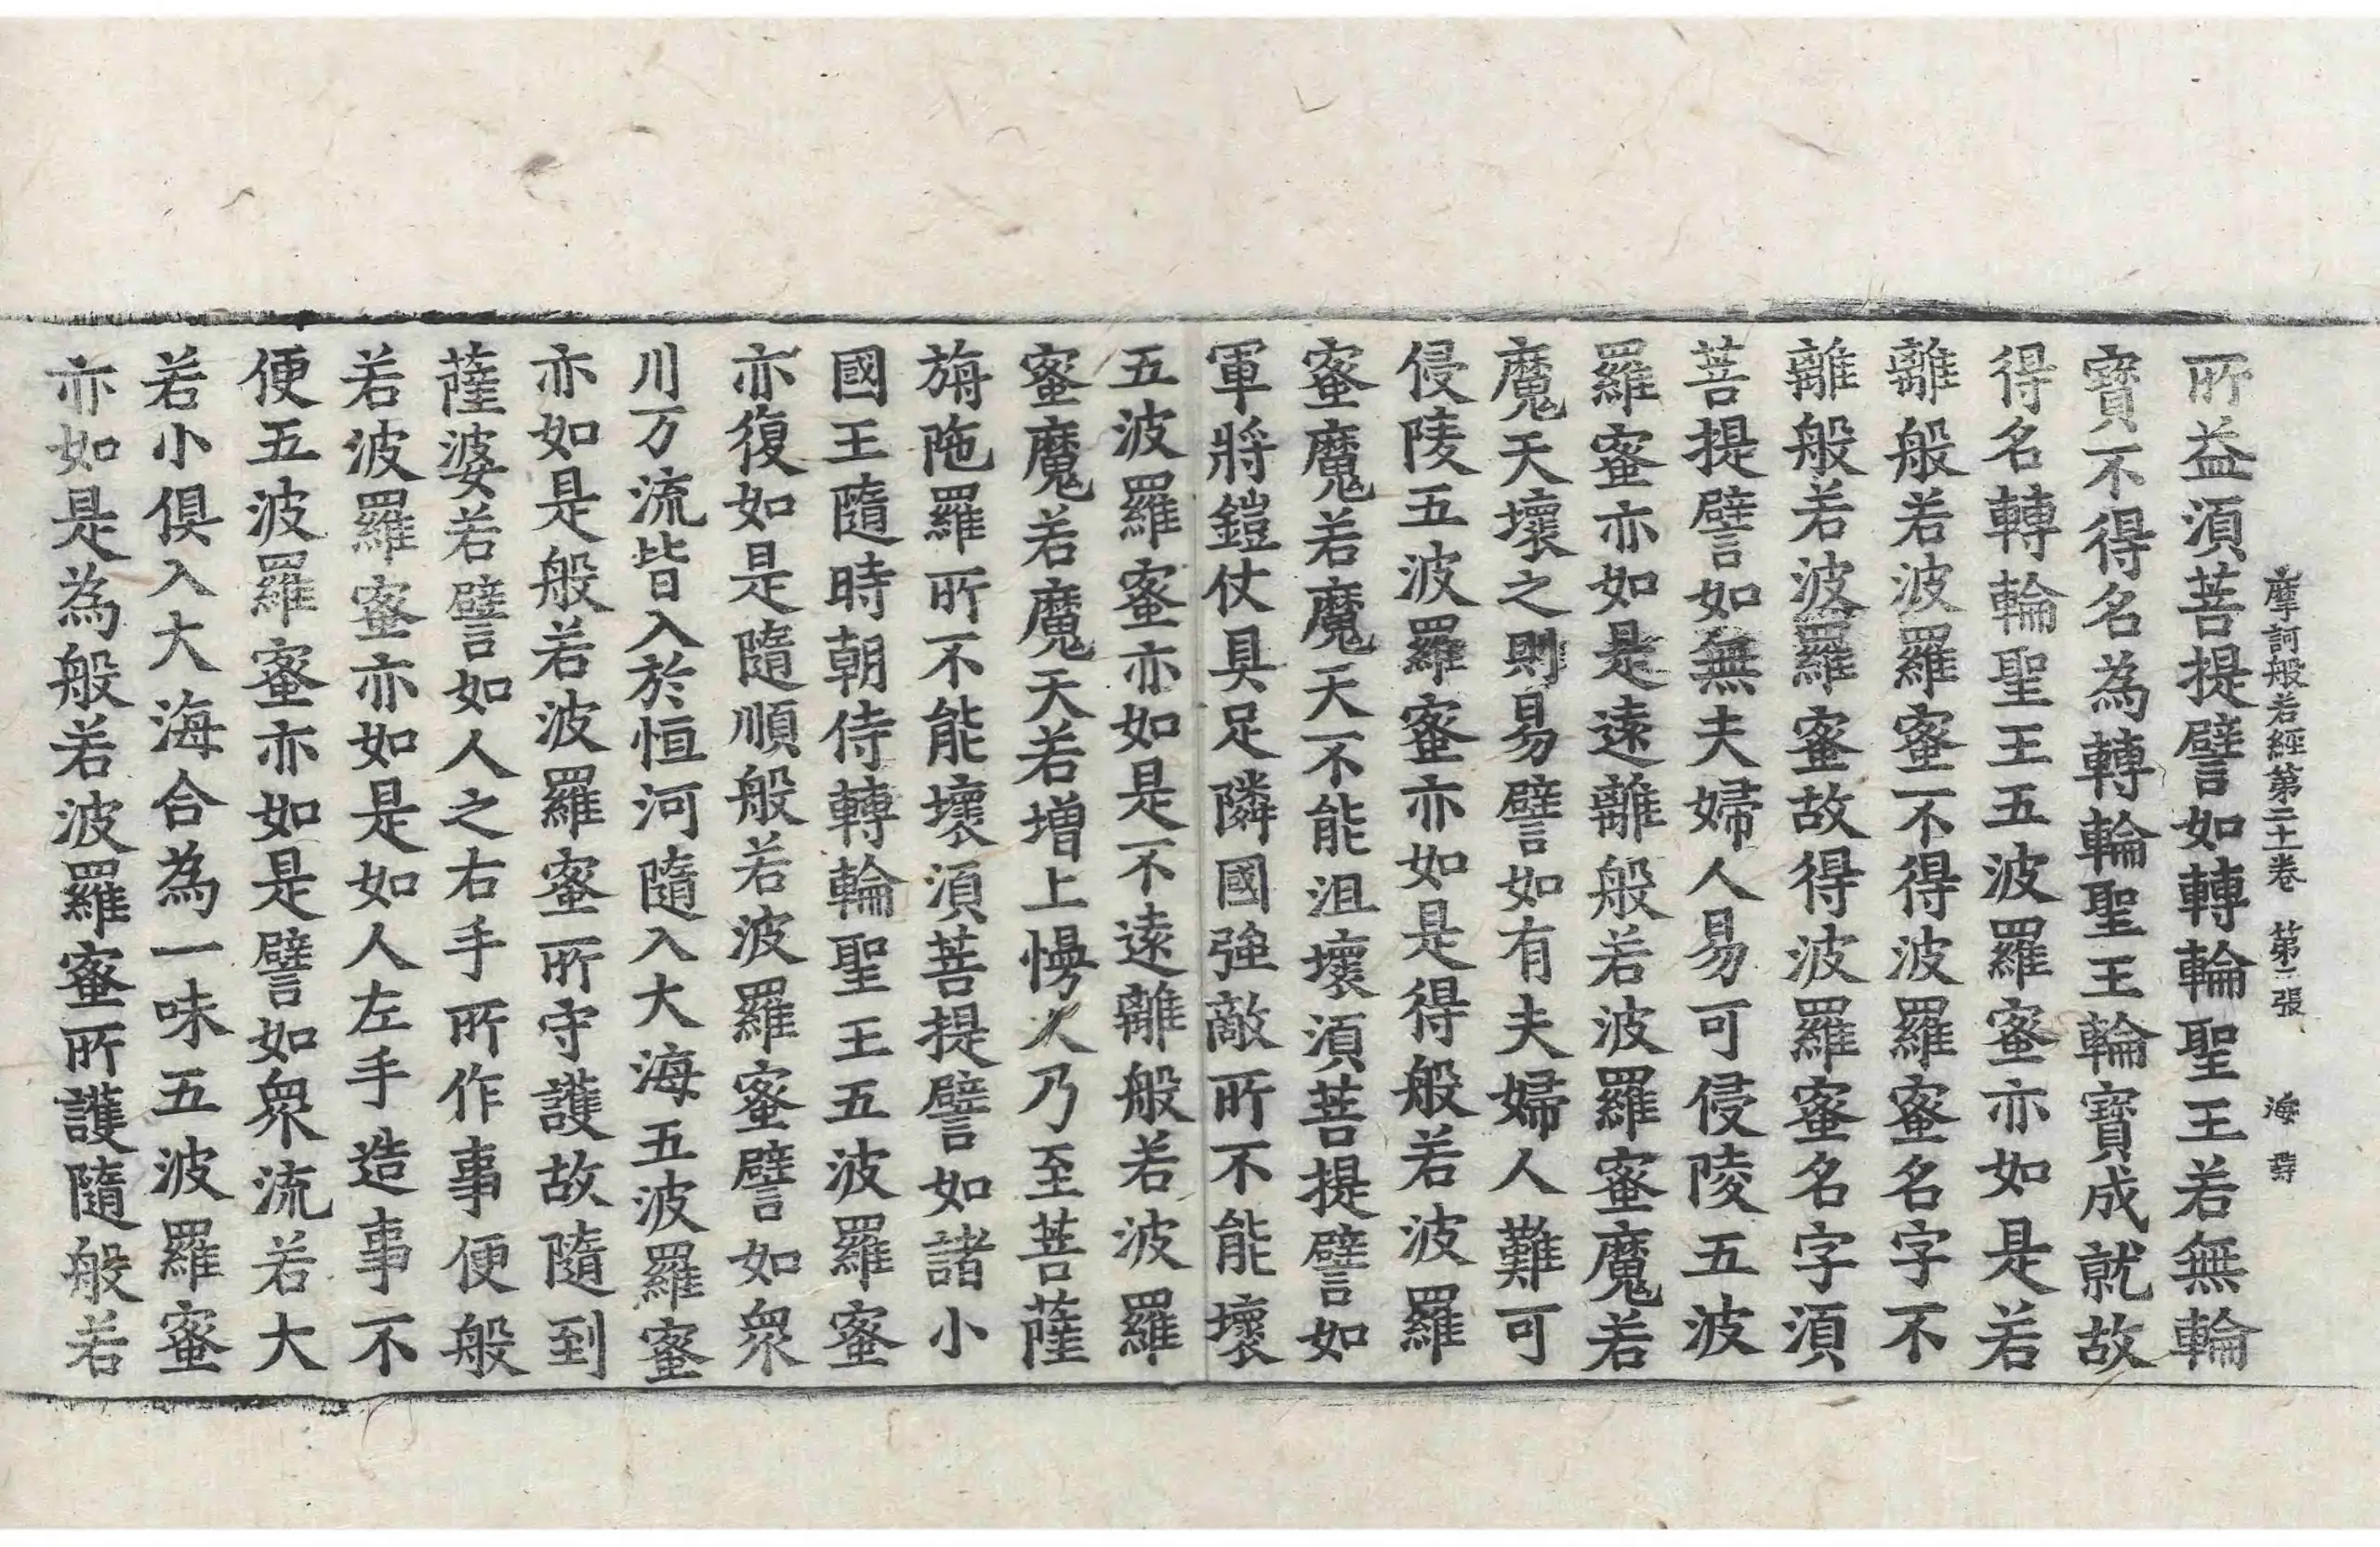 摩訶般若經第二十一卷 第二張 海
所益須菩提譬如轉輪聖王若無輪
寶不得名為轉輪聖王輪寶成就故
得名轉輪聖王五波羅蜜亦如是若
離般若波羅蜜不得波羅蜜名字不
離般若波羅蜜故得波羅蜜名字須
菩提譬如無夫婦人易可侵陵五波
羅蜜亦如是遠離般若波羅蜜魔若
魔天壞之則易譬如有夫婦人難可
侵陵五波羅蜜亦如是得般若波羅
蜜魔若魔天不能沮壞須菩提譬如
軍將鎧仗具足隣國強敵所不能壞
五波羅蜜亦如是不遠離般若波羅
蜜魔若魔天若增上慢人乃至菩薩
旃陁羅所不能壞須菩提譬如諸小
國王隨時朝侍轉輪聖王五波羅蜜
亦復如是隨順般若波羅蜜譬如衆
川万流皆入於恒河隨入大海五波羅蜜
亦如是般若波羅蜜所守護故隨到
薩婆若譬如人之右手所作事便般
若波羅蜜亦如是如人左手造事不
便五波羅蜜亦如是譬如衆流若大
若小俱入大海合為一味五波羅蜜
亦如是為般若波羅蜜所護隨般若